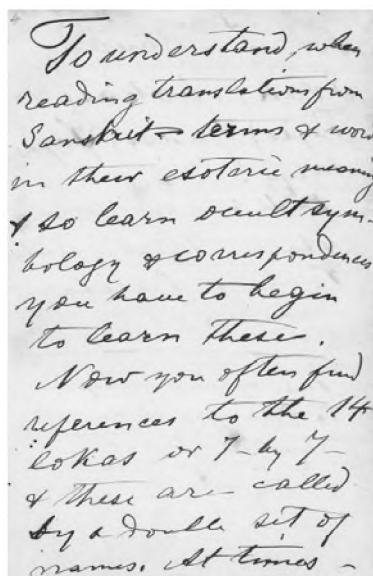 To understand, when
reading translations from
Sanskrit terms & word
in their esoteric meaning
& so learn occult sym-
bology & correspondences
you have to begin
to learn these.
Now you often find
references to the 14
lokas or 7 by 7
& these are called
by a double set of
names. At times -